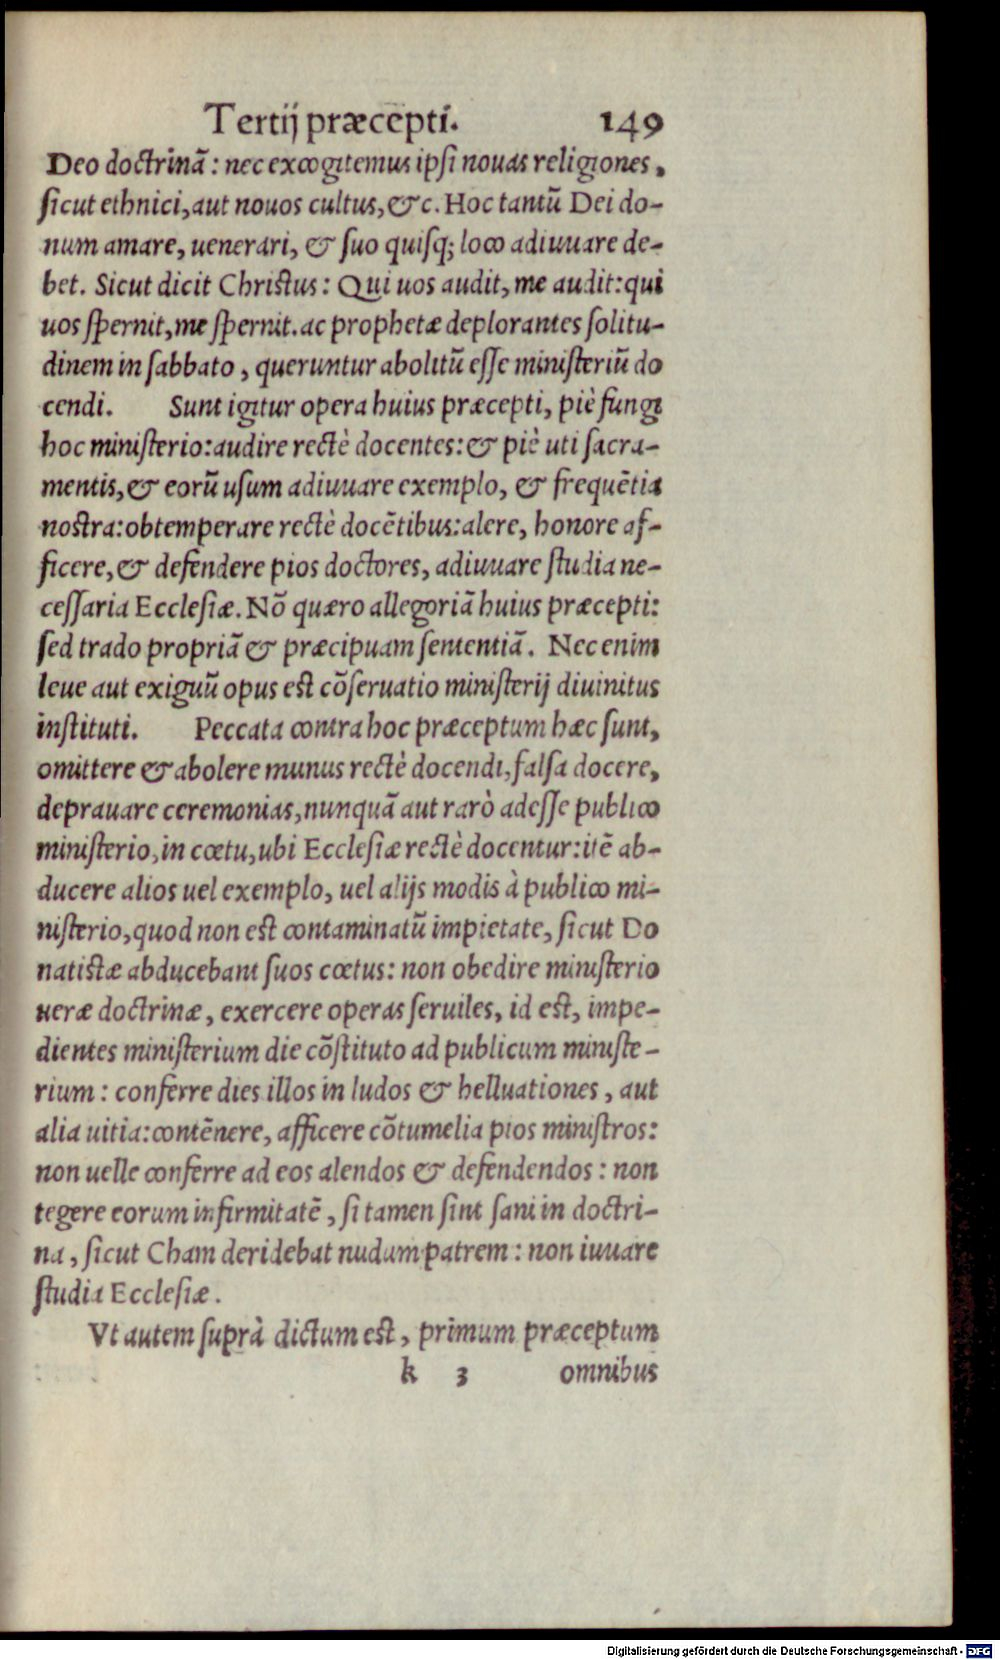 Tertij præcepti. 149
Deo doctrinã: nec excogitemus ipsi nouas religiones,
sicut ethnici, aut nouos cultus, &c. Hoc tantũ Dei do-
num amare, uenerari, & suo quisq; loco adiuuare de-
bet. Sicut dicit Christus: Qui uos audit, me audit: qui
uos spernit, me spernit. ac prophetæ deplorantes solitu-
dinem in sabbato, queruntur abolitũ esse ministeriũ do
cendi. Sunt igitur opera huius præcepti, piè fungi
hoc ministerio: audire rectè docentes: & piè uti sacra-
mentis, & eorũ usum adiuuare exemplo, & frequẽtia
nostra: obtemperare rectè docẽtibus: alere, honore af-
ficere, & defendere pios doctores, adiuuare studia ne-
cessaria Ecclesiæ. Nõ quæro allegoriã huius præcepti:
sed trado propriã & præcipuam sententiã. Nec enim
leue aut exiguũ opus est cõseruatio ministerij diuinitus
instituti. Peccata contra hoc præceptum hæc sunt,
omittere & abolere munus rectè docendi, falsa docere,
deprauare ceremonias, nunquã aut rarò adesse publico
ministerio, in cœtu, ubi Ecclesiæ rectè docentur: itẽ ab-
ducere alios uel exemplo, uel alijs modis à publico mi-
nisterio, quod non est contaminatũ impietate, sicut Do
natistæ abducebant suos cœtus: non obedire ministerio
ueræ doctrinæ, exercere operas seruiles, id est, impe-
dientes ministerium die cõstituto ad publicum ministe-
rium: conferre dies illos in ludos & helluationes, aut
alia uitia: contẽnere, afficere cõtumelia pios ministros:
non uelle conferre ad eos alendos & defendendos: non
tegere eorum infirmitatẽ, si tamen sint sani in doctri-
na, sicut Cham deridebat nudum patrem: non iuuare
studia Ecclesiæ.
Vt autem suprà dictum est, primum præceptum
k 3 omnibus
Digitalisierung gefördert durch die Deutsche Forschungsgemeinschaft - DFG